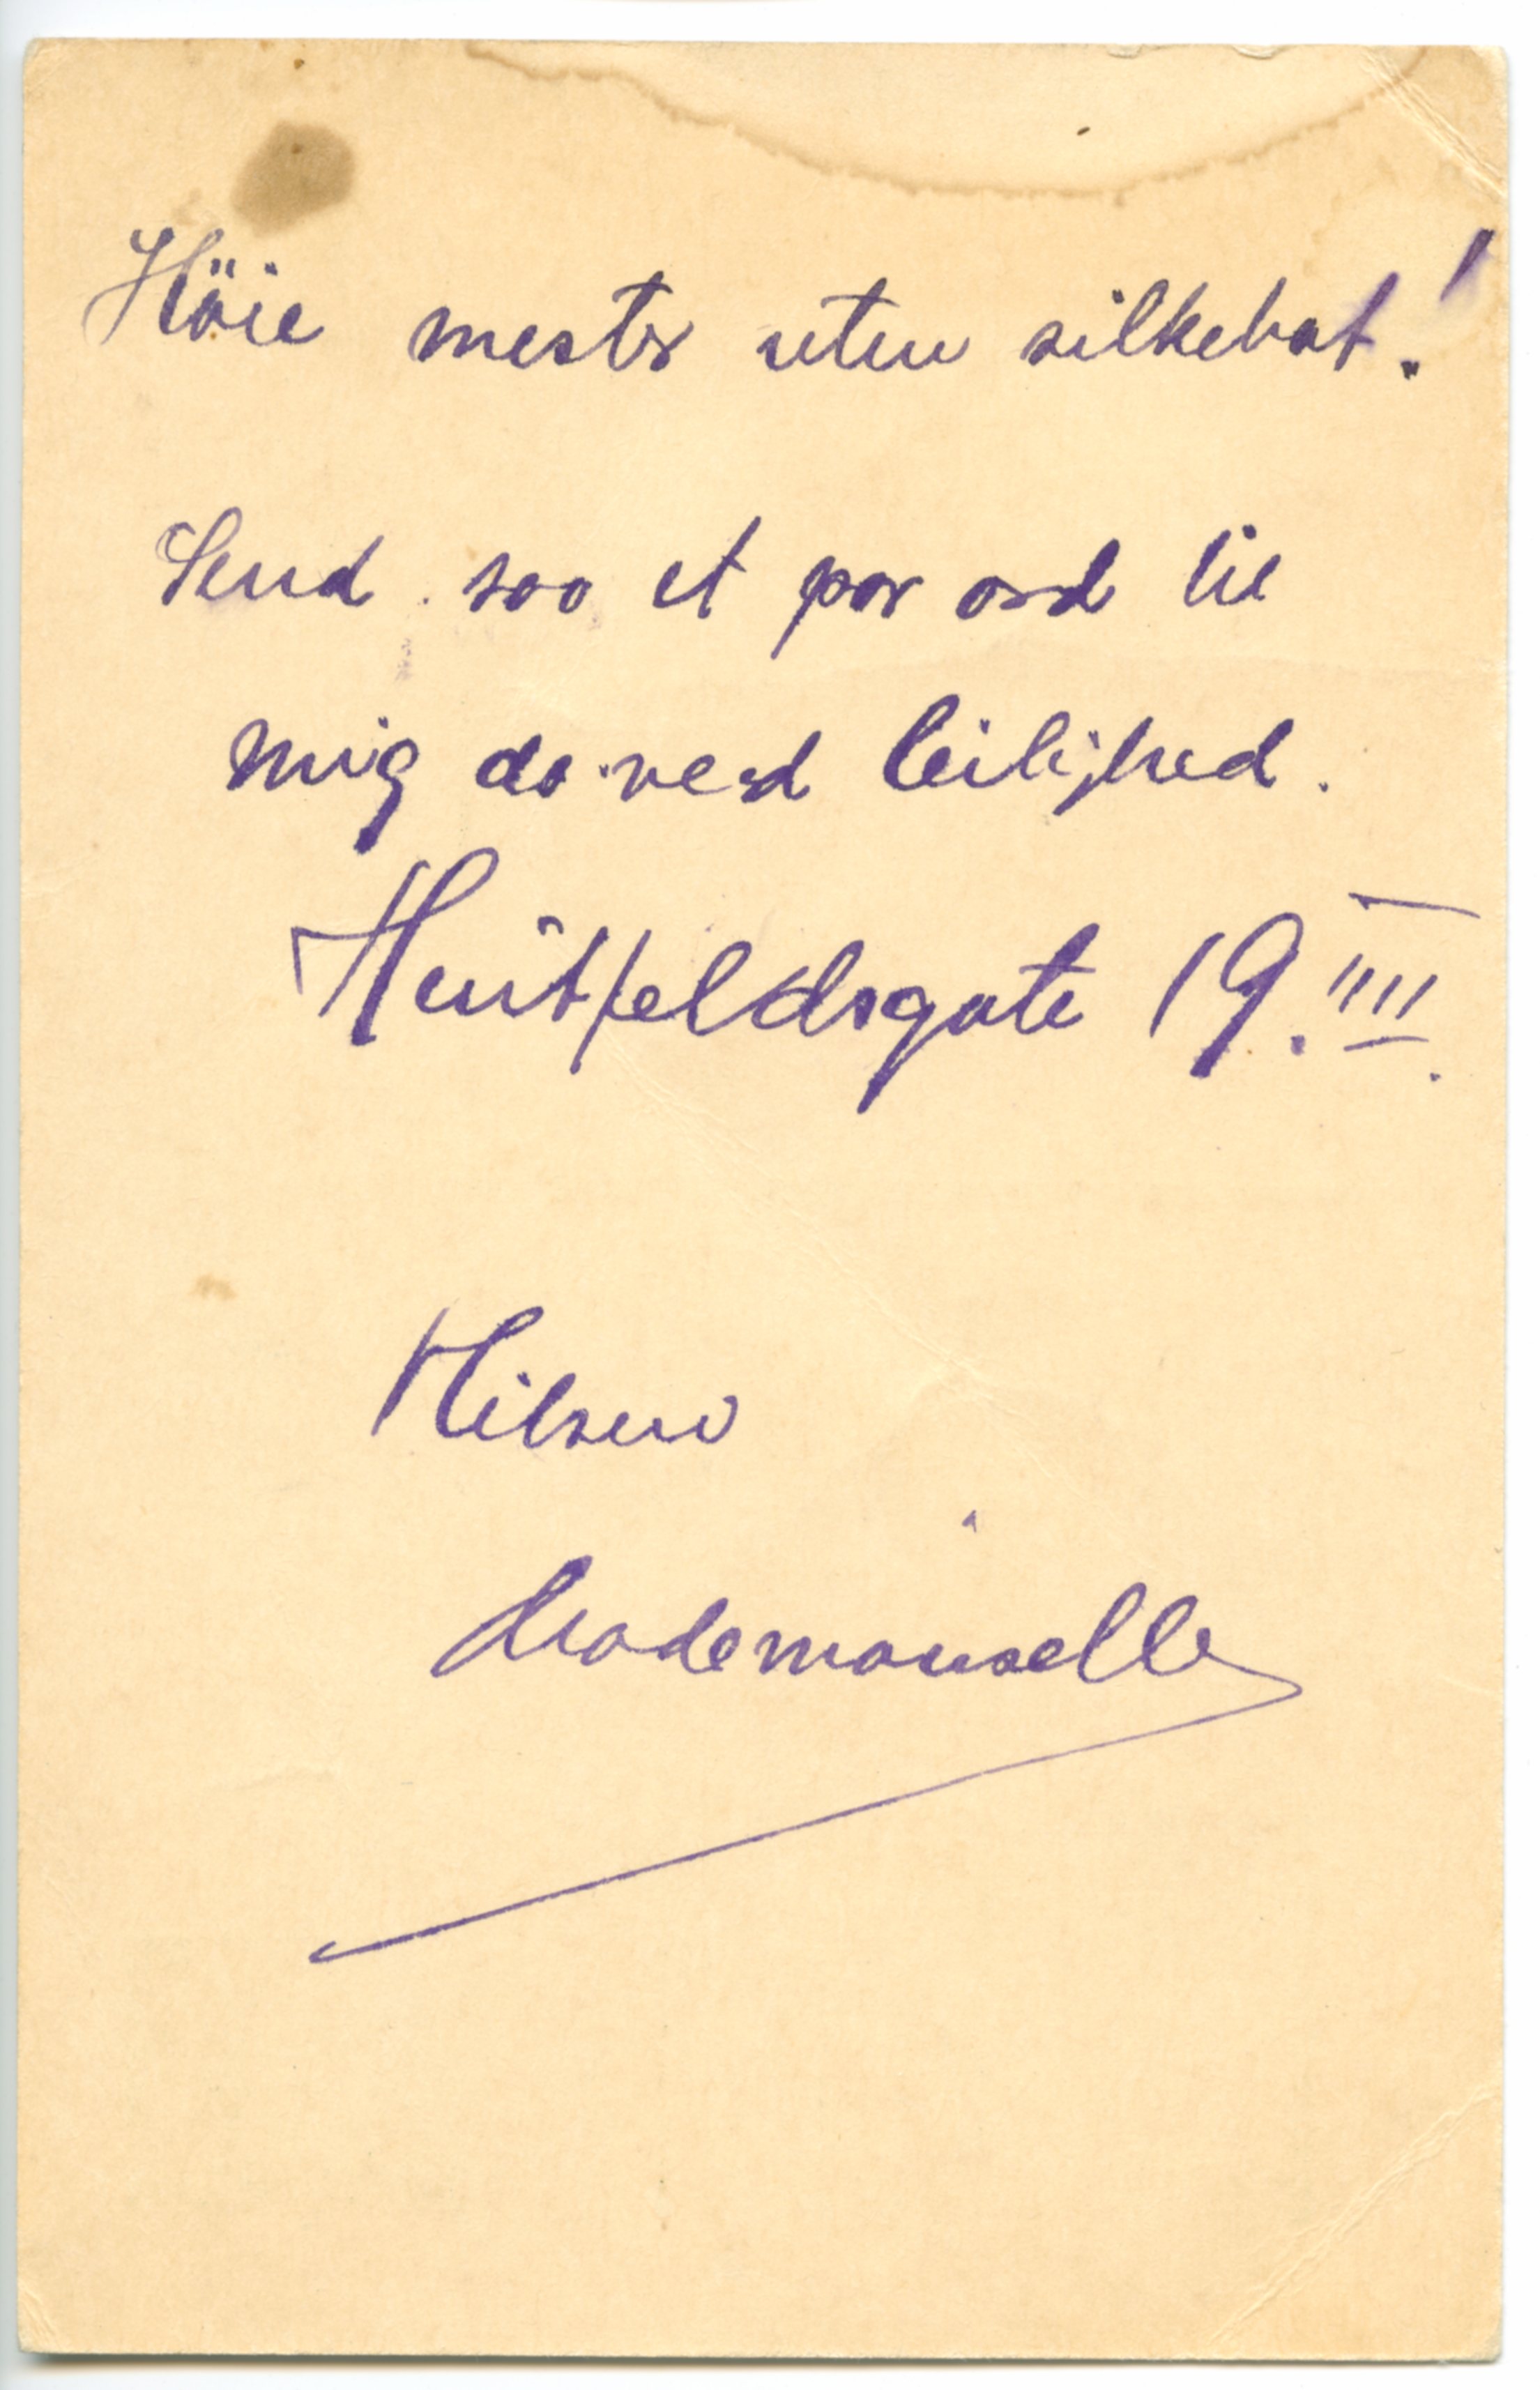 Höie mester uten silkehat!
Send saa et par ord til
mig da ved leilighed.
Huitfeldsgate 19. III.
Hilsen
Mademouselle